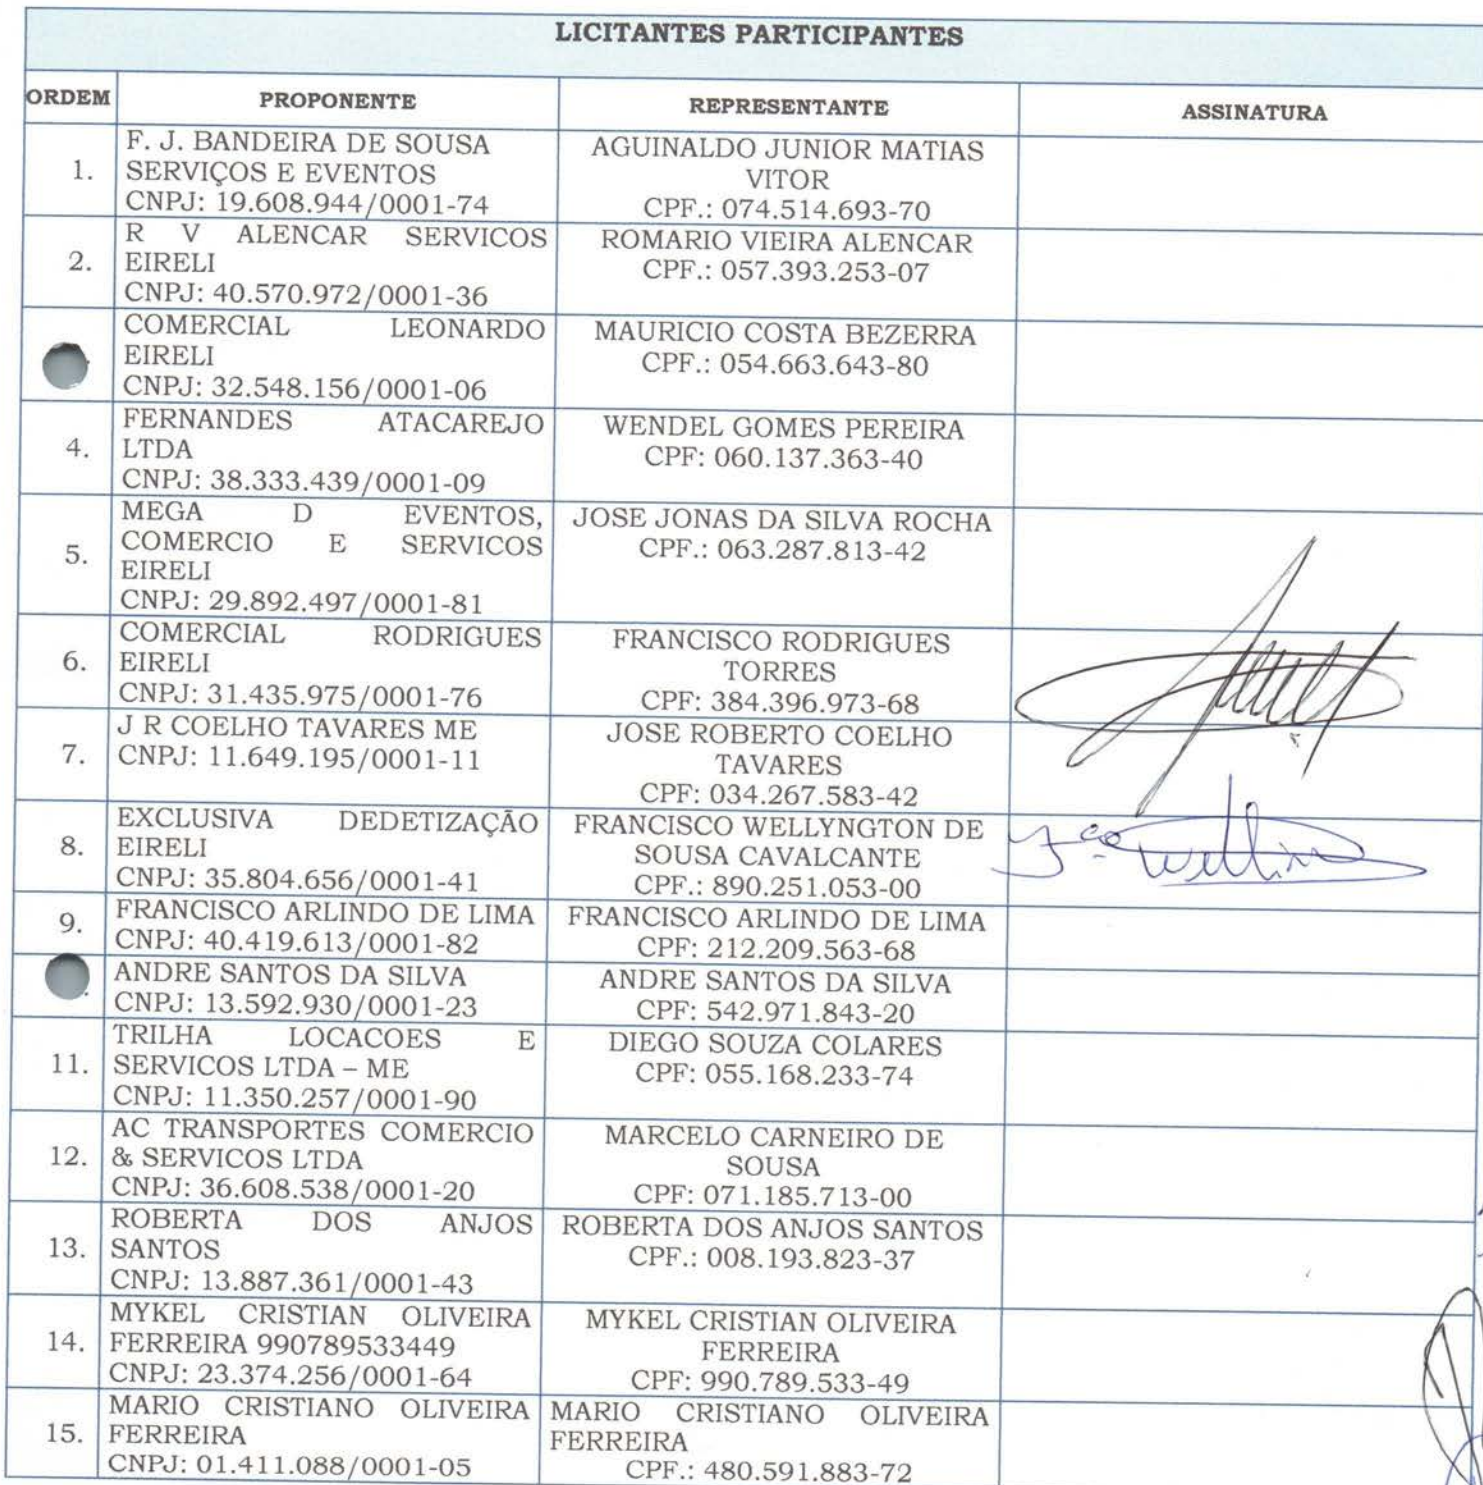 LICITANTES PARTICIPANTES
ORDEM PROPONENTE REPRESENTANTE ASSINATURA
1.
F. J. BANDEIRA DE SOUSA
SERVIÇOS E EVENTOS
CNPJ: 19.608.944/0001-74
AGUINALDO JUNIOR MATIAS
VITOR
CPF.: 074.514.693-70
2.
R V ALENCAR SERVICOS
EIRELI
CNPJ: 40.570.972/0001-36
ROMARIO VIEIRA ALENCAR
CPF.: 057.393.253-07
COMERCIAL LEONARDO
EIRELI
CNPJ: 32.548.156/0001-06
MAURICIO COSTA BEZERRA
CPF.: 054.663.643-80
4.
FERNANDES ATACAREJO
LTDA
CNPJ: 38.333.439/0001-09
WENDEL GOMES PEREIRA
CPF: 060.137.363-40
5.
MEGA D EVENTOS,
COMERCIO E SERVICOS
EIRELI
CNPJ: 29.892.497/0001-81
JOSE JONAS DA SILVA ROCHA
CPF.: 063.287.813-42
6.
COMERCIAL RODRIGUES
EIRELI
CNPJ: 31.435.975/0001-76
FRANCISCO RODRIGUES
TORRES
CPF: 384.396.973-68
7.
J R COELHO TAVARES ME
CNPJ: 11.649.195/0001-11
JOSE ROBERTO COELHO
TAVARES
CPF: 034.267.583-42
8.
EXCLUSIVA DEDETIZAÇÃO
EIRELI
CNPJ: 35.804.656/0001-41
FRANCISCO WELLYNGTON DE
SOUSA CAVALCANTE
CPF.: 890.251.053-00
9.
FRANCISCO ARLINDO DE LIMA
CNPJ: 40.419.613/0001-82
FRANCISCO ARLINDO DE LIMA
CPF: 212.209.563-68
ANDRE SANTOS DA SILVA
CNPJ: 13.592.930/0001-23
ANDRE SANTOS DA SILVA
CPF: 542.971.843-20
11.
TRILHA LOCACOES E
SERVICOS LTDA – ME
CNPJ: 11.350.257/0001-90
DIEGO SOUZA COLARES
CPF: 055.168.233-74
12.
AC TRANSPORTES COMERCIO
& SERVICOS LTDA
CNPJ: 36.608.538/0001-20
MARCELO CARNEIRO DE
SOUSA
CPF: 071.185.713-00
13.
ROBERTA DOS ANJOS
SANTOS
CNPJ: 13.887.361/0001-43
ROBERTA DOS ANJOS SANTOS
CPF.: 008.193.823-37
14.
MYKEL CRISTIAN OLIVEIRA
FERREIRA 990789533449
CNPJ: 23.374.256/0001-64
MYKEL CRISTIAN OLIVEIRA
FERREIRA
CPF: 990.789.533-49
15.
MARIO CRISTIANO OLIVEIRA
FERREIRA
CNPJ: 01.411.088/0001-05
MARIO CRISTIANO OLIVEIRA
FERREIRA
CPF.: 480.591.883-72